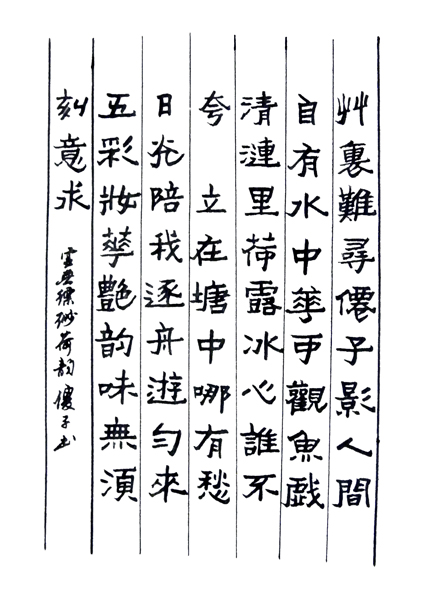 艸裏難尋僊子影人間
自有水中華可觀魚戲
清漣里荷露冰心誰不
夸 立在塘中哪有愁
日光陪我逐舟遊勻來
五彩妝華艷韵味無須
刻意求
荷韵